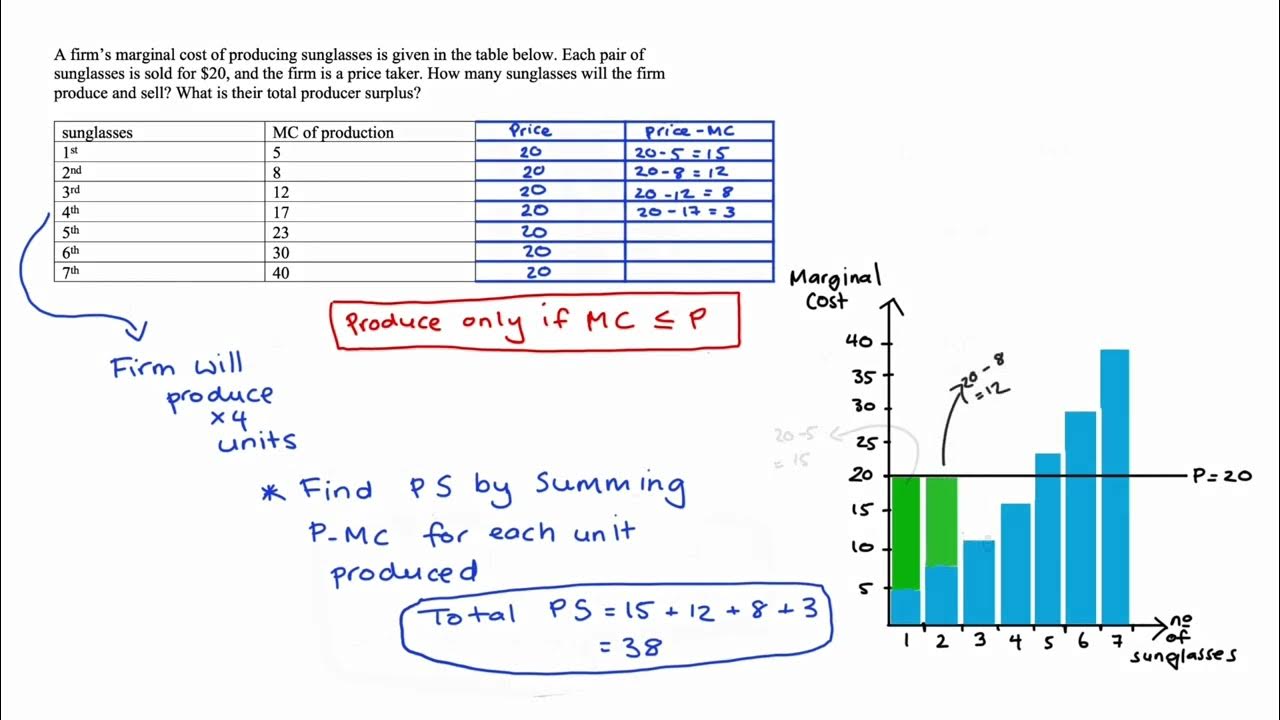 A firm's marginal cost of producing sunglasses is given in the table below. Each pair of
sunglasses is sold for $20, and the firm is a price taker. How many sunglasses will the firm
produce and sell? What is their total producer surplus?
sunglasses MC of production Price Price - MC
1st 5 20 20 - 5 = 15
2nd 8 20 20 - 8 = 12
3rd 12 20 20 - 12 = 8
4th 17 20 20 - 17 = 3
5th 23 20
6th 30 20
7th 40 20
Produce only if MC ≤ P
Firm will
produce
x4
units
* Find PS by summing
P-MC for each unit
produced
Total PS = 15 + 12 + 8 + 3
= 38
Marginal
Cost
40
35
30
25
20
15
10
5
20 - 8
= 12
20 - 5
= 15
P = 20
1 2 3 4 5 6 7
no
of
sunglasses